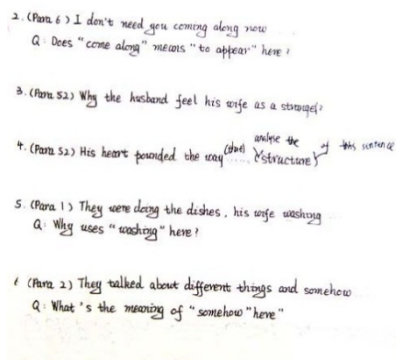 2. (Para 6) I don't need you coming along now
Q: Does "come along" means "to appear" here?
3. (Para 52) Why the husband feel his wife as a stranger?
4. (Para 52) His heart pounded the way ...... (analyse the structure of this sentence)
5. (Para 1) They were doing the dishes, his wife washing
Q: Why uses "washing" here?
(Para 2) They talked about different things and somehow
Q: What's the meaning of "somehow" here"